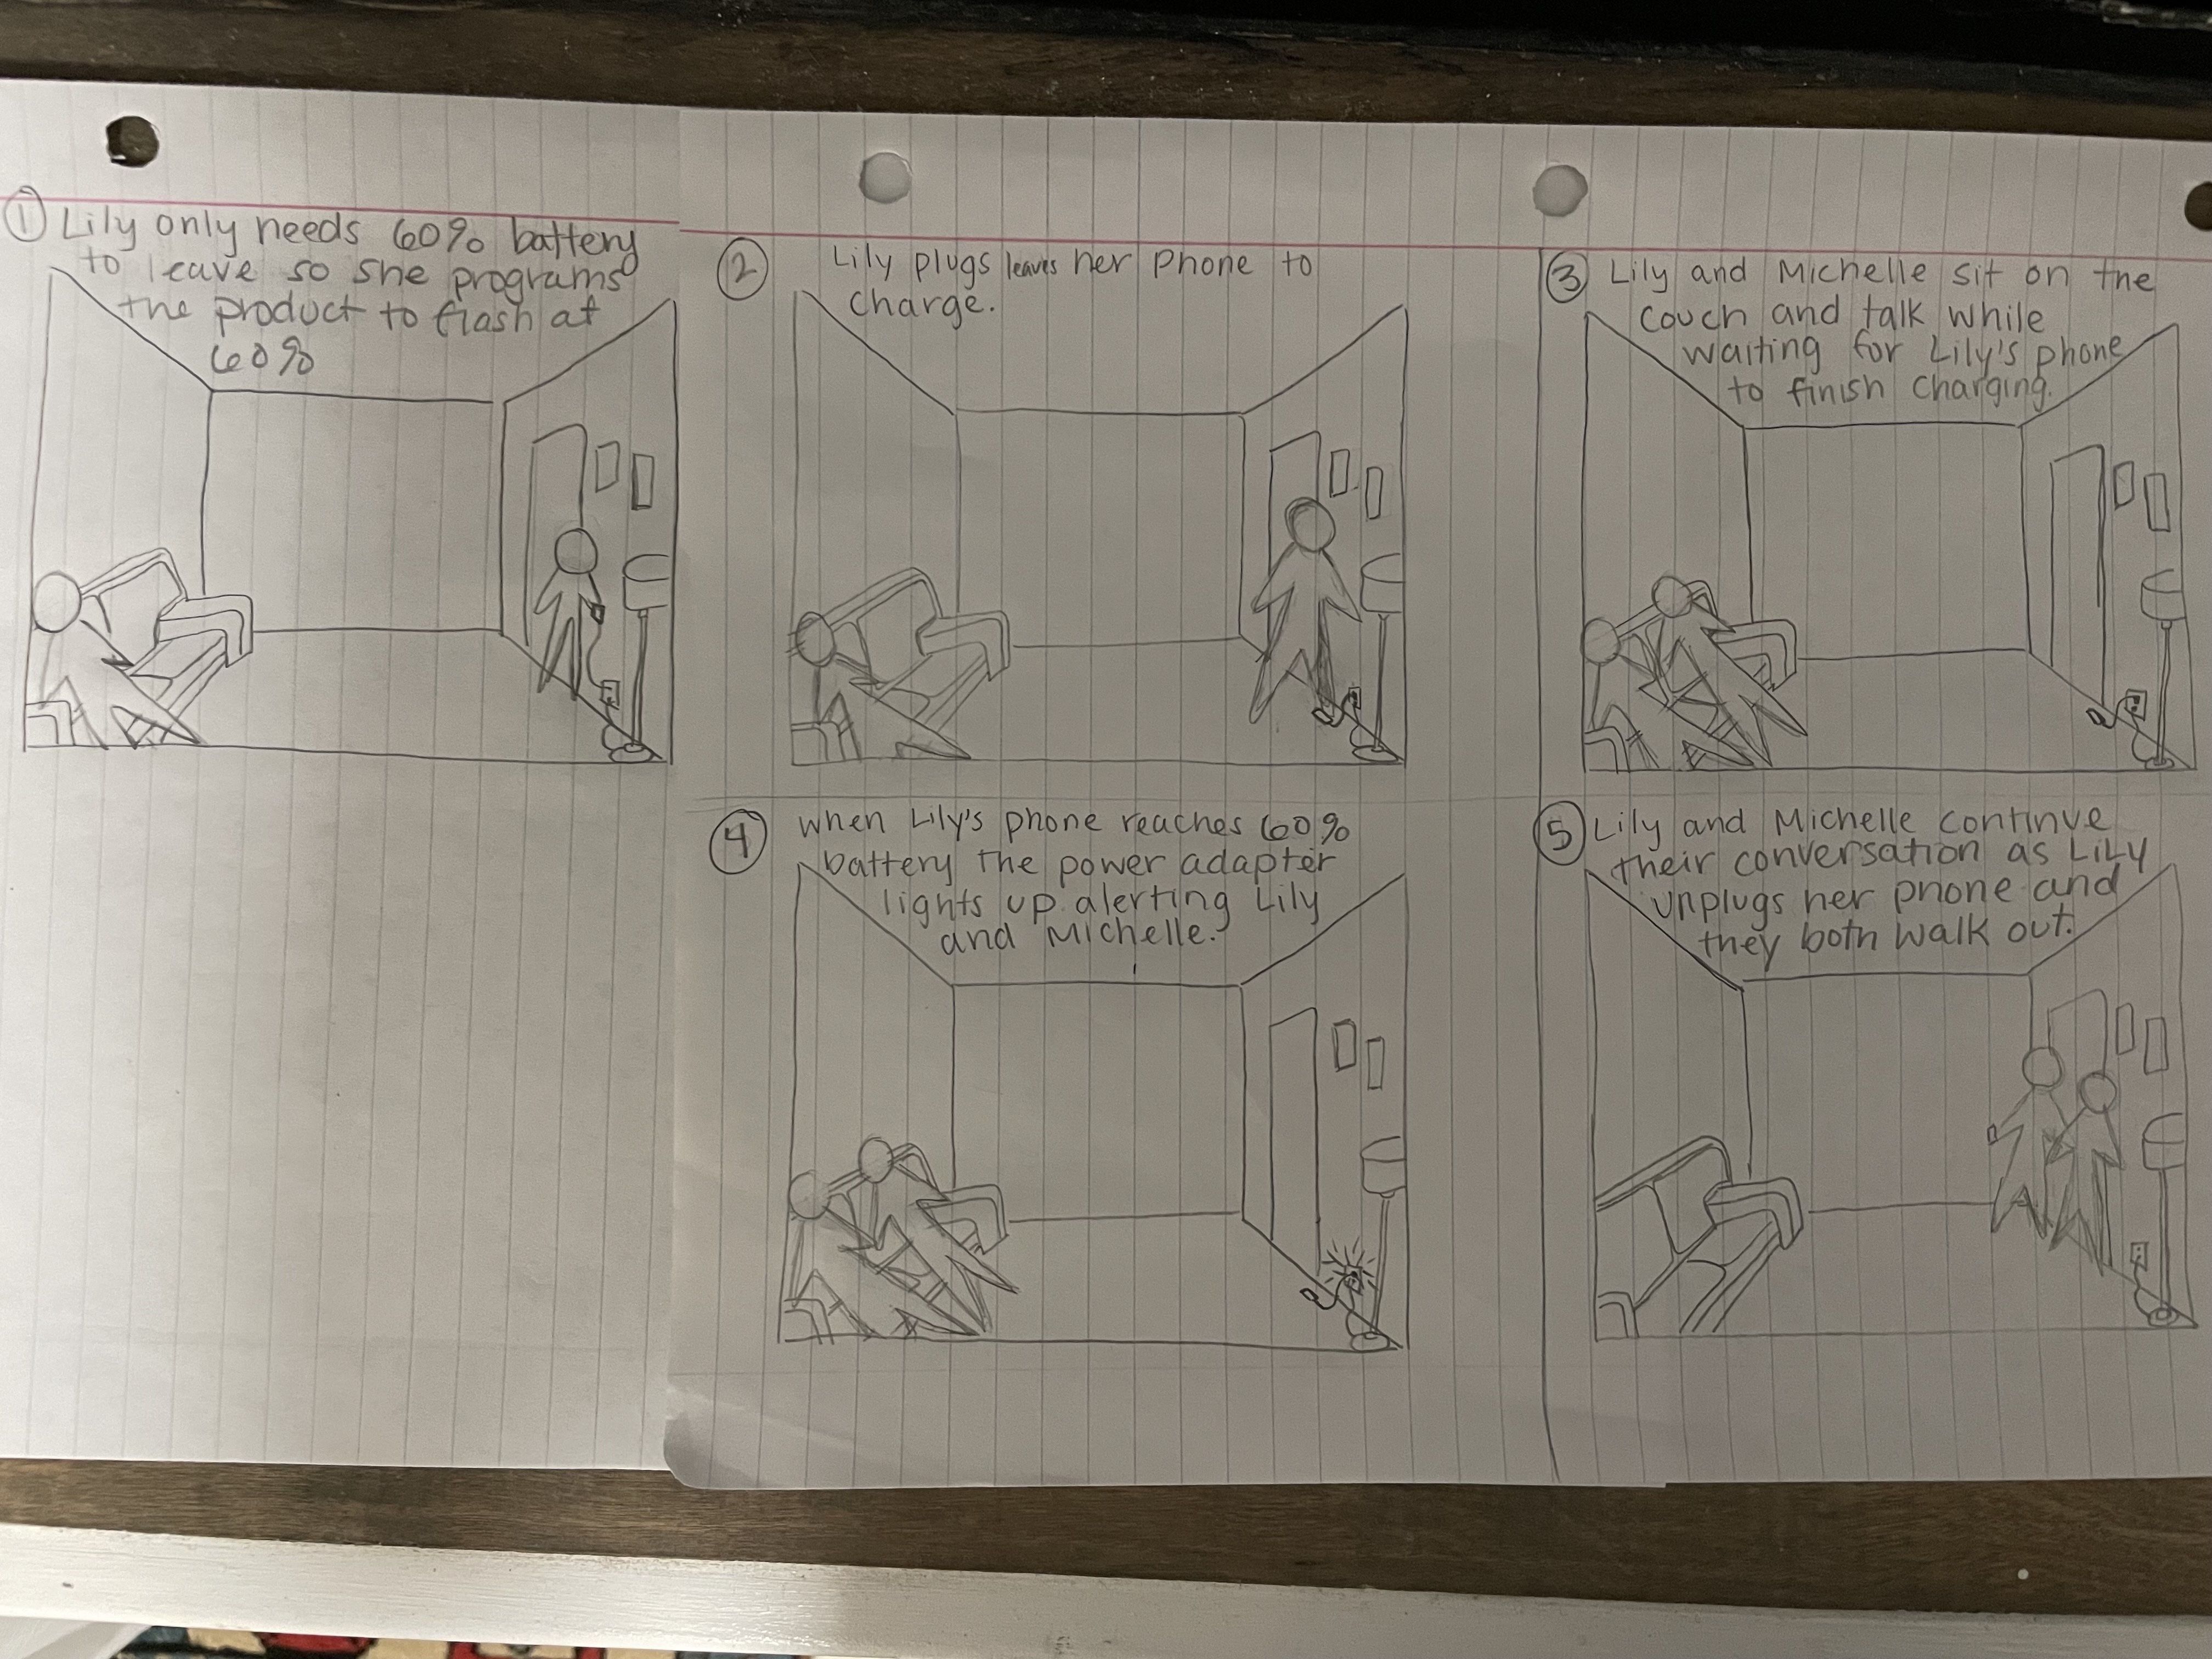 ① Lily only needs 60% battery
to leave so she programs
the product to flash at
60%
② Lily plugs leaves her phone to
charge.
③ Lily and Michelle sit on the
couch and talk while
waiting for Lily's phone
to finish charging.
④ When Lily's phone reaches 60%
battery the power adapter
lights up alerting Lily
and Michelle.
⑤ Lily and Michelle continue
their conversation as Lily
unplugs her phone and
they both walk out.